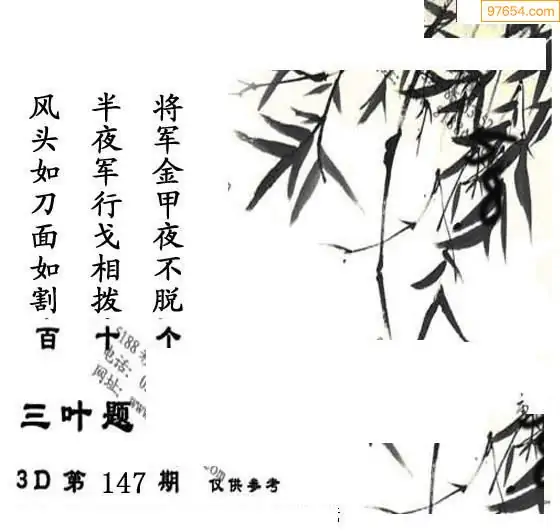 97654.com
将军金甲夜不脱
半夜军行戈相拨
风头如刀面如割
百 十 个
5188
电话: 0
网址: www
三叶题
3D第 147 期 仅供参考
.com